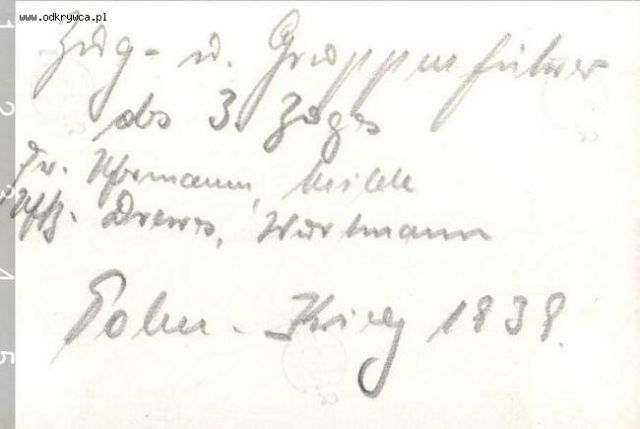 www.odkrywca.pl
Zug- u. Gruppenführer
des 3. Zuges
Milde
Uffz. Drews, Wortmann
Polen-Krieg 1939.
1
2
3
4
5